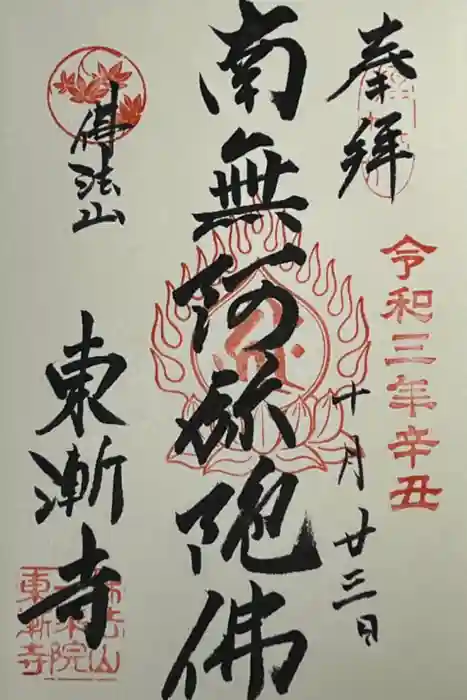 奉拝
令和三年辛丑
十月廿三日
南無阿弥陀佛
佛法山
東漸寺
佛法山
東漸寺